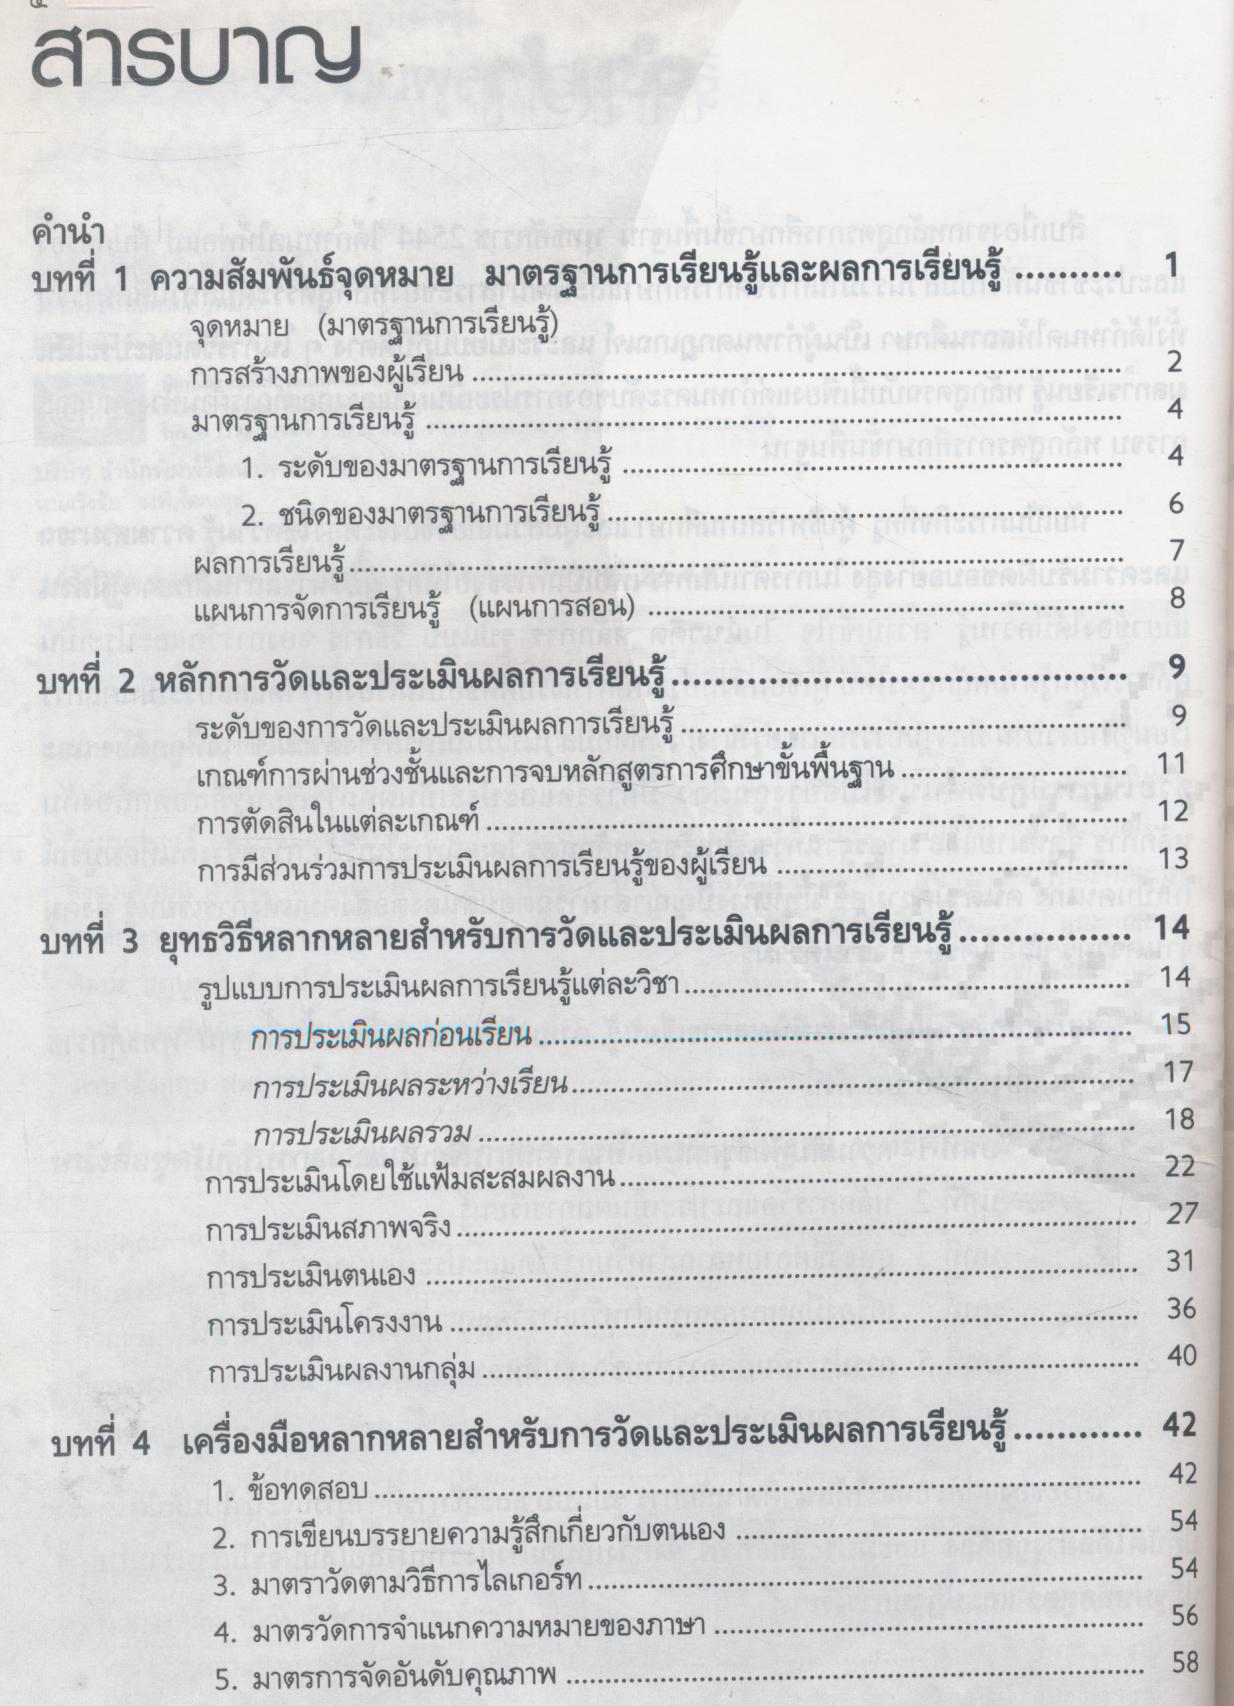 สารบาญ
คำนำ
บทที่ 1 ความสัมพันธ์จุดหมาย มาตรฐานการเรียนรู้และผลการเรียนรู้ .......... 1
จุดหมาย (มาตรฐานการเรียนรู้)
การสร้างภาพของผู้เรียน .......... 2
มาตรฐานการเรียนรู้ .......... 4
1. ระดับของมาตรฐานการเรียนรู้ .......... 4
2. ชนิดของมาตรฐานการเรียนรู้ .......... 6
ผลการเรียนรู้ .......... 7
แผนการจัดการเรียนรู้ (แผนการสอน) .......... 8
บทที่ 2 หลักการวัดและประเมินผลการเรียนรู้ .......... 9
ระดับของการวัดและประเมินผลการเรียนรู้ .......... 9
เกณฑ์การผ่านช่วงชั้นและการจบหลักสูตรการศึกษาขั้นพื้นฐาน .......... 11
การตัดสินในแต่ละเกณฑ์ .......... 12
การมีส่วนร่วมการประเมินผลการเรียนรู้ของผู้เรียน .......... 13
บทที่ 3 ยุทธวิธีหลากหลายสำหรับการวัดและประเมินผลการเรียนรู้ .......... 14
รูปแบบการประเมินผลการเรียนรู้แต่ละวิชา .......... 14
การประเมินผลก่อนเรียน .......... 15
การประเมินผลระหว่างเรียน .......... 17
การประเมินผลรวม .......... 18
การประเมินโดยใช้แฟ้มสะสมผลงาน .......... 22
การประเมินสภาพจริง .......... 27
การประเมินตนเอง .......... 31
การประเมินโครงงาน .......... 36
การประเมินผลงานกลุ่ม .......... 40
บทที่ 4 เครื่องมือหลากหลายสำหรับการวัดและประเมินผลการเรียนรู้ .......... 42
1. ข้อทดสอบ .......... 42
2. การเขียนบรรยายความรู้สึกเกี่ยวกับตนเอง .......... 54
3. มาตราวัดตามวิธีการไลเกอร์ท .......... 54
4. มาตรวัดการจำแนกความหมายของภาษา .......... 56
5. มาตรการจัดอันดับคุณภาพ .......... 58